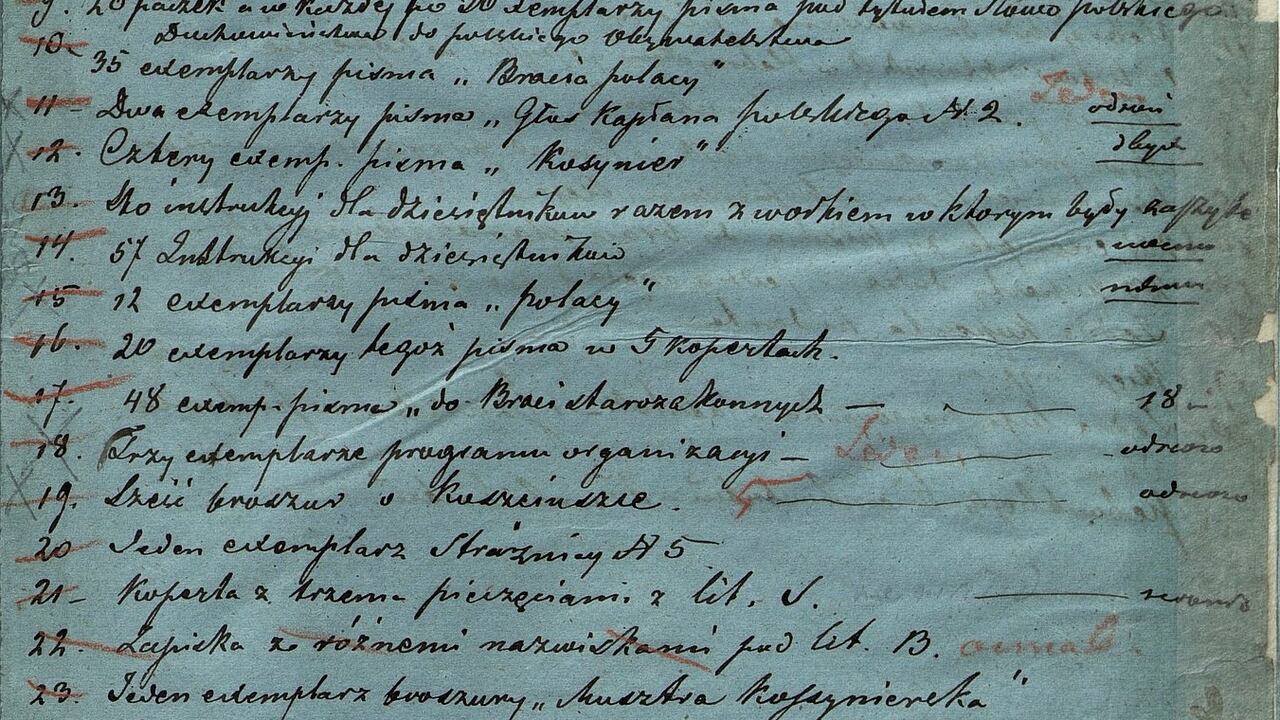 9. 20 paczek a w każdej po 20 exemplarzy pisma pod tytułem Słowo polskiego
Duchowieństwa do polskiego Obywatelstwa
10. 35 exemplarzy pisma „Bracia polacy"
11 - Dwa exemplarzy pisma „Głos Kapłana polskiego N. 2.
12. Cztery exemp. pisma „Kosynier"
13. Sto instrukcyj dla dziesiętników razem z workiem w ktorym były
14. 57 Instrukcyi dla dziesiętników
15 12 exemplarzy pisma „polacy"
16. 20 exemplarzy tegoż pisma w 5 kopertach.
17. 48 exemp. pisma „do Braci starozakonnych — 18
18. Trzy exemplarze programu organizacyi — Jeden
19. Sześć broszur o Koszciuszce. 5
20 Jeden exemplarz Strażnicy N 5
21 - Koperta z trzema pieczęciami z lit. S.
22. Zapiska z różnemi nazwiskami pod lit. B.
23. Jeden exemplarz broszury „Musztra Kossynierska"